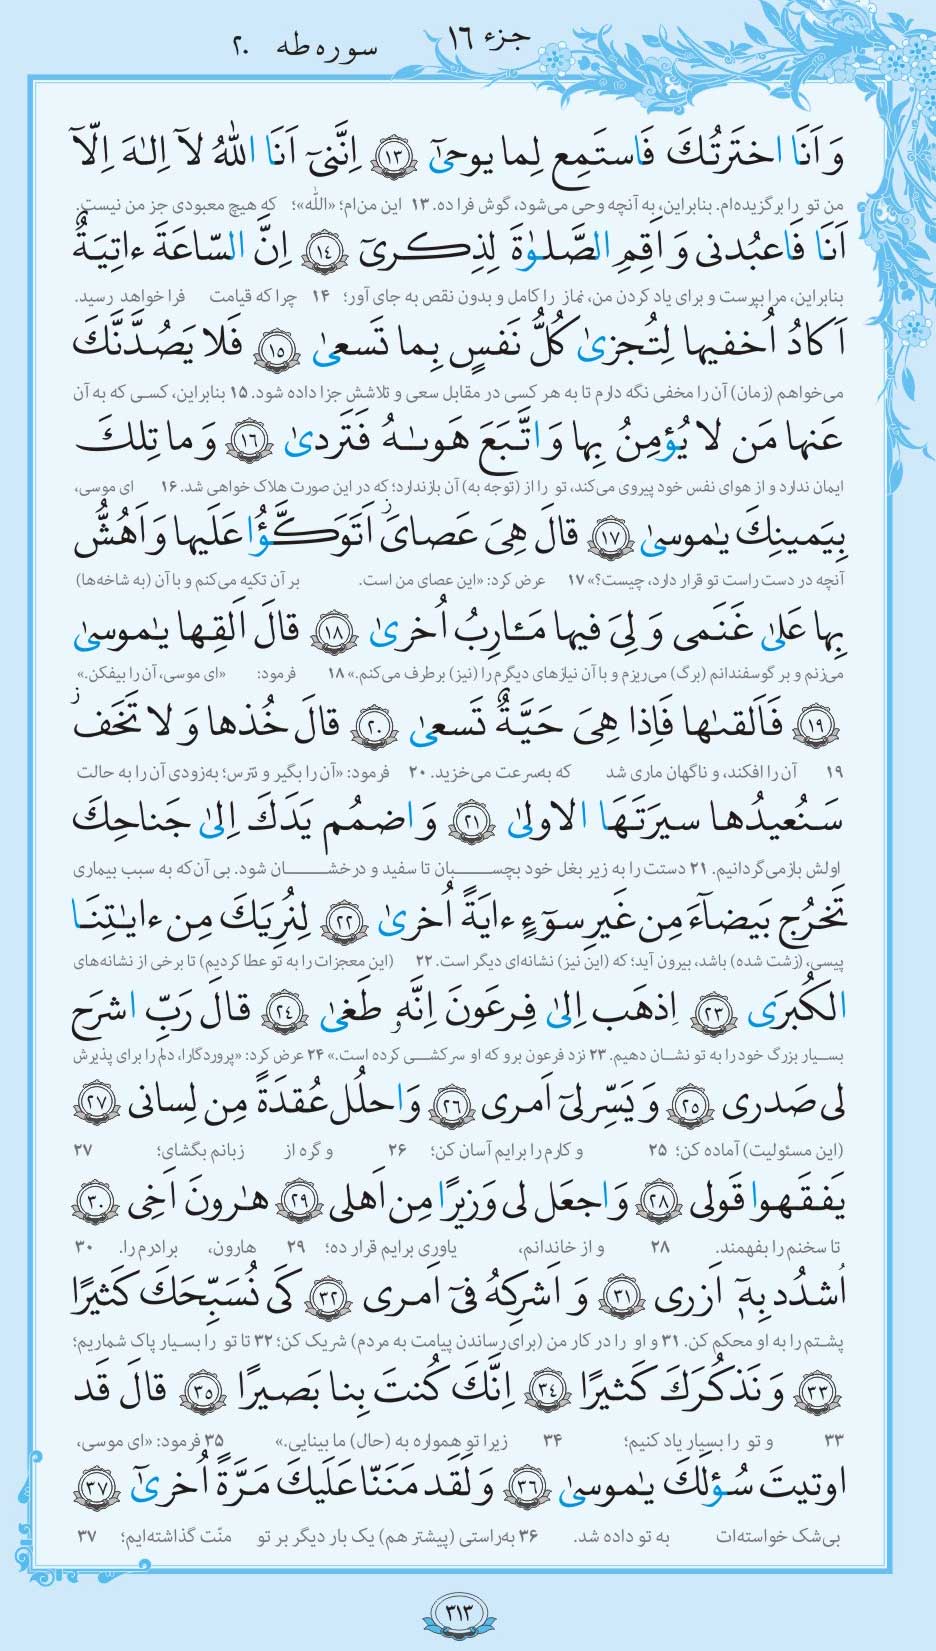 جزء ۱۶
سوره طه ۲۰
وَ اَنَا اختَرتُكَ فَاستَمِع لِما يوحىٰٓ ﴿۱۳﴾ اِنَّنىٓ اَنَا اللّٰهُ لآ اِلٰهَ اِلّآ
من تو را برگزیده‌ام. بنابراین، به آنچه وحی می‌شود، گوش فرا ده. ۱۳ این من‌ام؛ «الله»؛ که هیچ معبودی جز من نیست.
اَنَا فَاعبُدنى وَ اَقِمِ الصَّلوٰةَ لِذِكرىٓ ﴿۱۴﴾ اِنَّ السّاعَةَ ءاتِيَةٌ
بنابراین، مرا بپرست و برای یاد کردن من، نماز را کامل و بدون نقص به جای آور؛ ۱۴ چرا که قیامت فرا خواهد رسید.
اَكادُ اُخفيها لِتُجزىٰ كُلُّ نَفسٍ بِما تَسعىٰ ﴿۱۵﴾ فَلا يَصُدَّنَّكَ
می‌خواهم (زمان) آن را مخفی نگه دارم تا به هر کسی در مقابل سعی و تلاشش جزا داده شود. ۱۵ بنابراین، کسی که به آن
عَنها مَن لا يُؤمِنُ بِها وَ اتَّبَعَ هَوىٰهُ فَتَردىٰ ﴿۱۶﴾ وَ ما تِلكَ
ایمان ندارد و از هوای نفس خود پیروی می‌کند، تو را از (توجه به) آن بازندارد؛ که در این صورت هلاک خواهی شد. ۱۶ ای موسی،
بِيَمينِكَ يٰموسىٰ ﴿۱۷﴾ قالَ هِىَ عَصاىَ ز اَتَوَكَّؤُا عَلَيها وَ اَهُشُّ
آنچه در دست راست تو قرار دارد، چیست؟» ۱۷ عرض کرد: «این عصای من است. بر آن تکیه می‌کنم و با آن (به شاخه‌ها)
بِها عَلىٰ غَنَمى وَ لِىَ فيها مَـٔارِبُ اُخرىٰ ﴿۱۸﴾ قالَ اَلقِها يٰموسىٰ
می‌زنم و بر گوسفندانم (برگ) می‌ریزم و با آن نیازهای دیگرم را (نیز) برطرف می‌کنم.» ۱۸ فرمود: «ای موسی، آن را بیفکن.»
﴿۱۹﴾ فَاَلقىٰها فَاِذا هِىَ حَيَّةٌ تَسعىٰ ﴿۲۰﴾ قالَ خُذها وَ لا تَخَف ز
۱۹ آن را افکند، و ناگهان ماری شد که به‌سرعت می‌خزید. ۲۰ فرمود: «آن را بگیر و نترس؛ به‌زودی آن را به حالت
سَنُعيدُها سيرَتَهَا الاولىٰ ﴿۲۱﴾ وَ اضمُم يَدَكَ اِلىٰ جَناحِكَ
اولش بازمی‌گردانیم. ۲۱ دستت را به زیر بغل خود بچسبان تا سفید و درخشان شود. بی آن‌که به سبب بیماری
تَخرُج بَيضآءَ مِن غَيرِ سوٓءٍ ءايَةً اُخرىٰ ﴿۲۲﴾ لِنُرِيَكَ مِن ءايٰتِنَا
پیسی، (زشت شده) باشد، بیرون آید؛ که (این نیز) نشانه‌ای دیگر است. ۲۲ (این معجزات را به تو عطا کردیم) تا برخی از نشانه‌های
الكُبرَى ﴿۲۳﴾ اِذهَب اِلىٰ فِرعَونَ اِنَّهٗ طَغىٰ ﴿۲۴﴾ قالَ رَبِّ اشرَح
بسیار بزرگ خود را به تو نشان دهیم. ۲۳ نزد فرعون برو که او سرکشی کرده است.» ۲۴ عرض کرد: «پروردگارا، دلم را برای پذیرش
لى صَدرى ﴿۲۵﴾ وَ يَسِّر لىٓ اَمرى ﴿۲۶﴾ وَ احلُل عُقدَةً مِن لِسانى ﴿۲۷﴾
(این مسئولیت) آماده کن؛ ۲۵ و کارم را برایم آسان کن؛ ۲۶ و گره از زبانم بگشای؛ ۲۷
يَفقَهوا قَولى ﴿۲۸﴾ وَ اجعَل لى وَزيرًا مِن اَهلى ﴿۲۹﴾ هٰرونَ اَخِى ﴿۳۰﴾
تا سخنم را بفهمند. ۲۸ و از خاندانم، یاوری برایم قرار ده؛ ۲۹ هارون، برادرم را. ۳۰
اُشدُد بِهٖٓ اَزرى ﴿۳۱﴾ وَ اَشرِكهُ فىٓ اَمرى ﴿۳۲﴾ كَى نُسَبِّحَكَ كَثيرًا
پشتم را به او محکم کن. ۳۱ و او را در کار من (برای رساندن پیامت به مردم) شریک کن؛ ۳۲ تا تو را بسیار پاک شماریم؛
﴿۳۳﴾ وَ نَذكُرَكَ كَثيرًا ﴿۳۴﴾ اِنَّكَ كُنتَ بِنا بَصيرًا ﴿۳۵﴾ قالَ قَد
۳۳ و تو را بسیار یاد کنیم؛ ۳۴ زیرا تو همواره به (حال) ما بینایی.» ۳۵ فرمود: «ای موسی،
اوتيتَ سُؤلَكَ يٰموسىٰ ﴿۳۶﴾ وَ لَقَد مَنَنّا عَلَيكَ مَرَّةً اُخرىٰٓ ﴿۳۷﴾
بی‌شک خواسته‌ات به تو داده شد. ۳۶ به‌راستی (پیشتر هم) یک بار دیگر بر تو منّت گذاشته‌ایم؛ ۳۷
۳۱۳